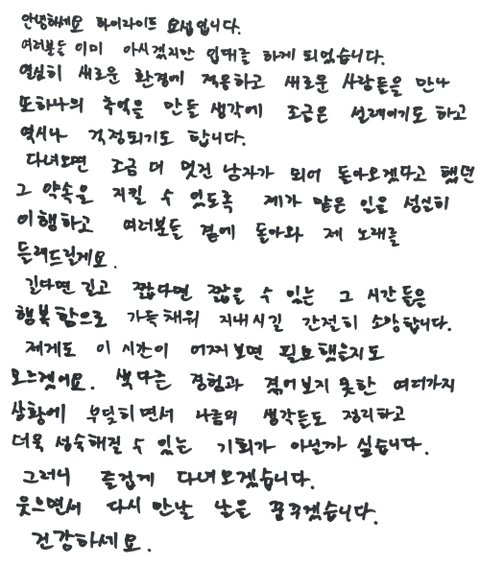 안녕하세요 하이라이트 요섭입니다.
여러분들 이미 아시겠지만 입대를 하게 되었습니다.
열심히 새로운 환경에 적응하고 새로운 사람들을 만나
또하나의 추억을 만들 생각에 조금은 설레이기도 하고
역시나 걱정되기도 합니다.
다녀오면 조금 더 멋진 남자가 되어 돌아오겠다고 했던
그 약속을 지킬 수 있도록 제가 맡은 일을 성실히
이행하고 여러분들 곁에 돌아와 제 노래를
들려드릴게요.
길다면 길고 짧다면 짧을 수 있는 그 시간들은
행복함으로 가득채워 지내시길 간절히 소망합니다.
저에게도 이 시간이 어쩌보면 필요했을지도
모르겠어요. 색다른 경험과 겪어보지 못한 여러가지
상황에 부딪히면서 나름의 생각들도 정리하고
더욱 성숙해질 수 있는 기회가 아닐까 싶습니다.
그러니 즐겁게 다녀오겠습니다.
웃으면서 다시 만날 날을 꿈꾸겠습니다.
건강하세요.